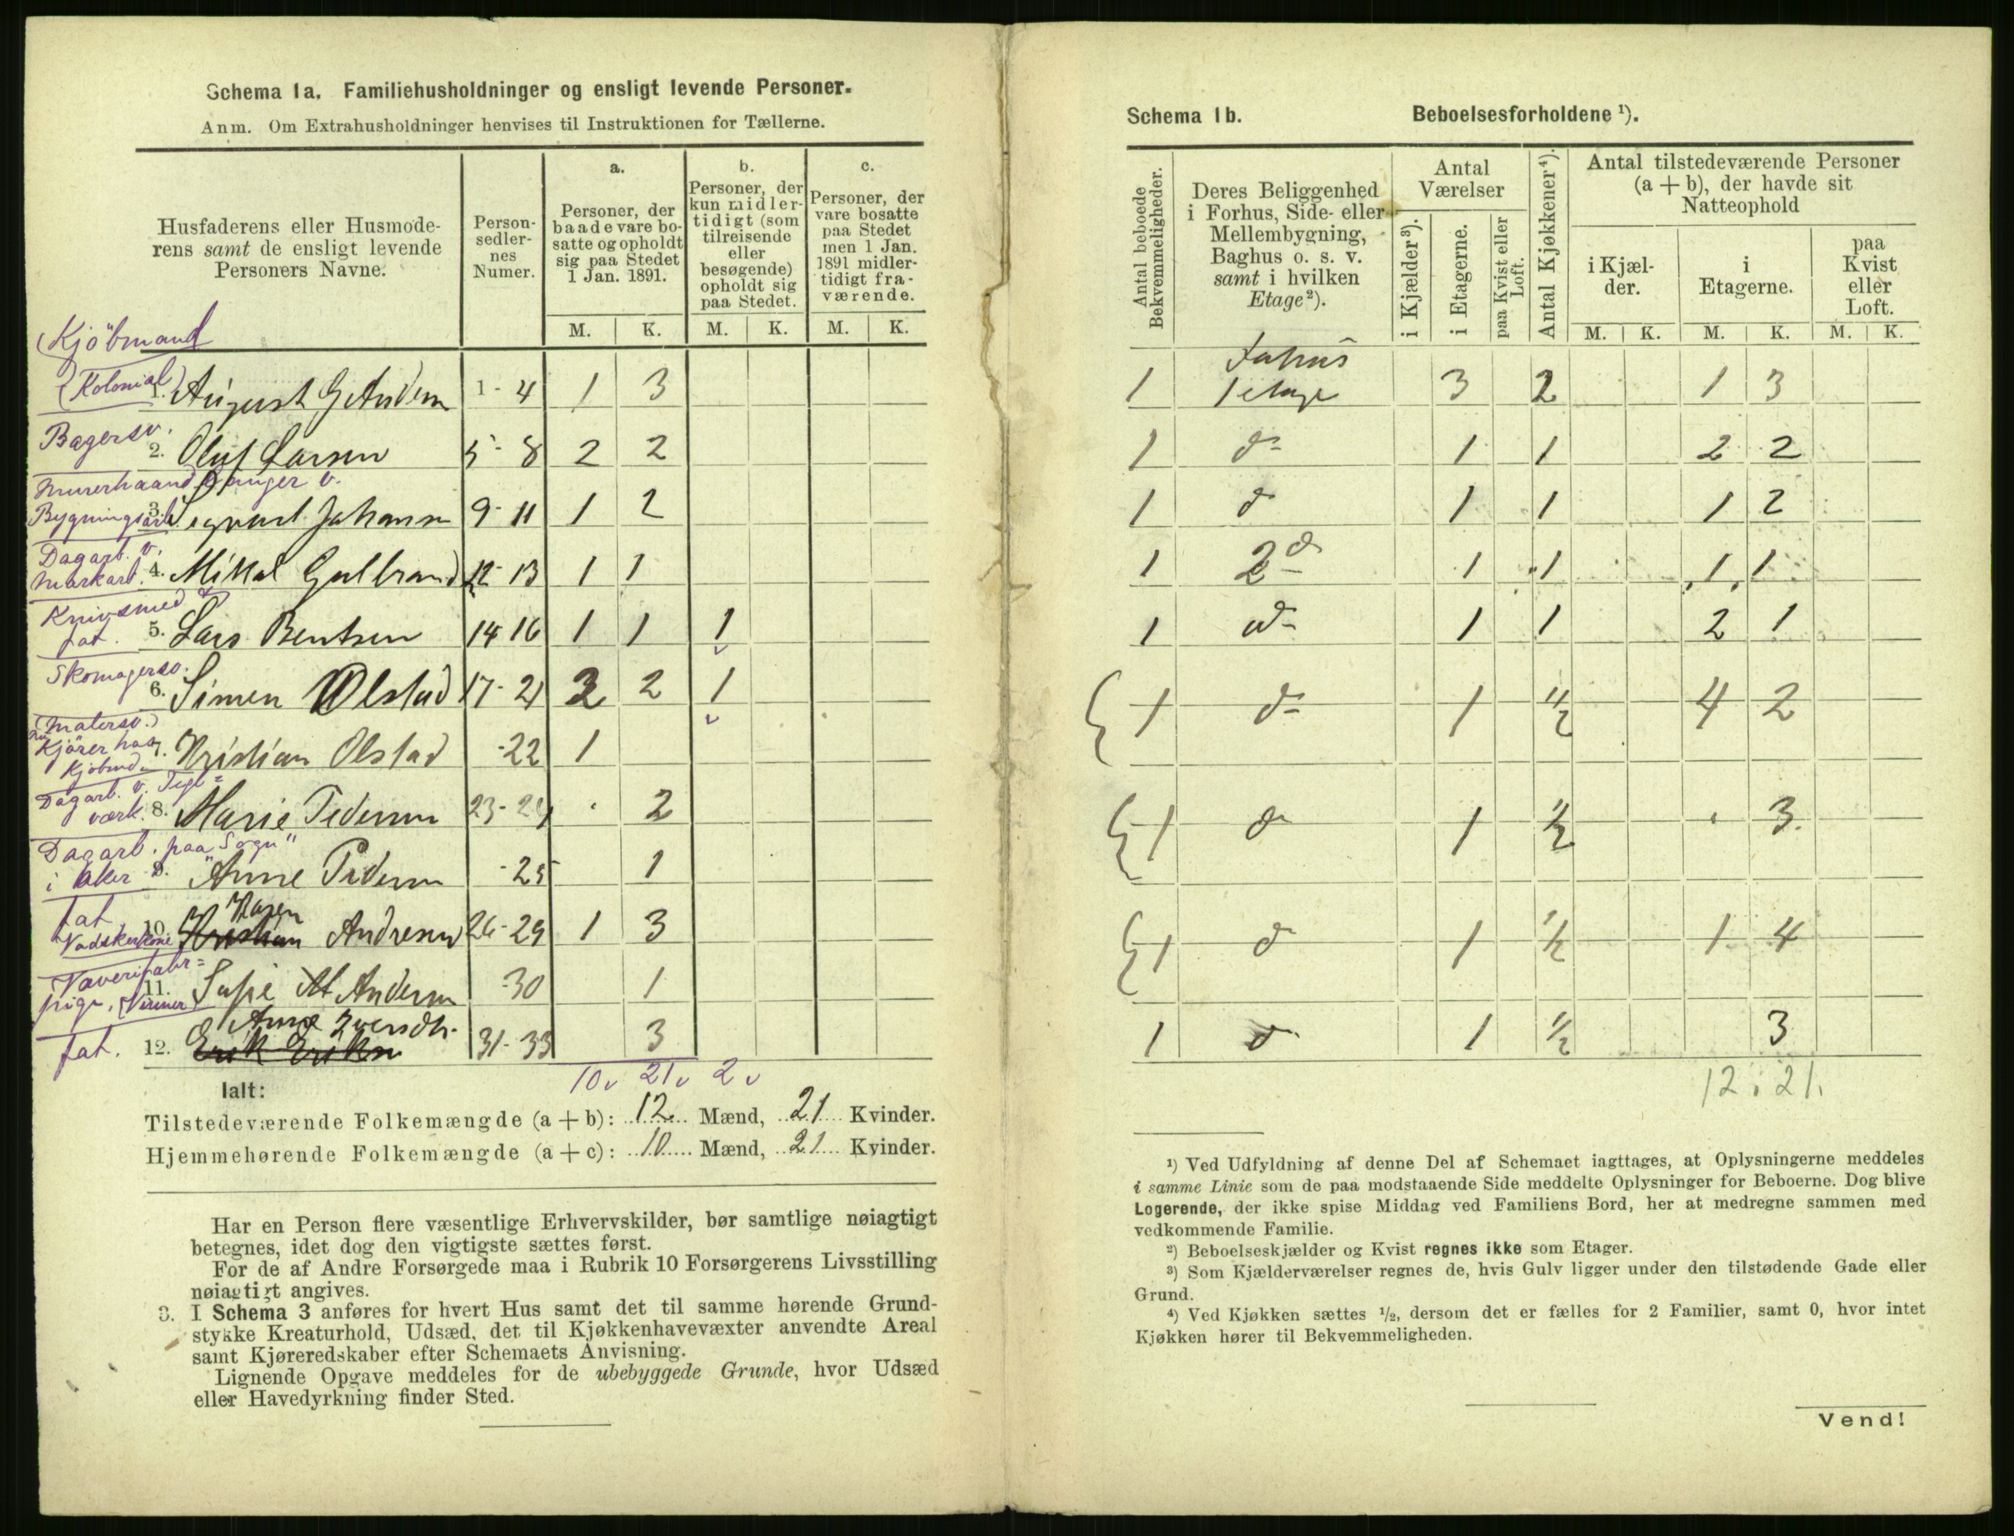 Schema 1a. Familiehusholdninger og ensligt levende Personer.
Anm. Om Extrahusholdninger henvises til Instruktionen for Tællerne.
Husfaderens eller Husmode-
rens samt de ensligt levende
Personers Navne.
Person-
sedler-
nes
Numer.
a.
Personer, der
baade vare bo-
satte og opholdt
sig paa Stedet
1 Jan. 1891.
b.
Personer, der
kun midler-
tidigt (som
tilreisende
eller
besøgende)
opholdt sig
paa Stedet.
c.
Personer, der
vare bosatte
paa Stedet
men 1 Jan.
1891 midler-
tidigt fra-
værende.
M. K. M. K. M. K.
(Kjöbmand
(Kolonial)
1. August G Andersen 1 - 4 1 3
Bagersv.
2. Oluf Larsen 5 - 8 2 2
Murerhaandlanger v.
Bygningsarb
3. Sigvart Johansen 9 - 11 1 2
Dagarb. v.
Markarb.
4. Mikal Gulbrand 12 - 13 1 1
Knivsmed
fat.
5. Lars Bentsen 14 16 1 1 1
Skomagersv.
6. Simen Olstad 17 - 21 2 2 1
(Malersv.)
Kjörer hos
Kjöbmd.
7. Kristian Olstad -22 1
Dagarb. v. Tegl=
værk.
8. Marie Pedersen 23 - 24 . 2
Dagarb. paa "Sogn"
i Aker
9. Anne Pedersen -25 1
fat.
Vadskerkone
10. Karen Andresen 26 - 29 1 3
Væverifabr=
pige.
11. Sofie M Andersen -30 1
fat.
12. Anne Iversdtr. 31 - 33 3
Erik Eriksen
10 v 21 v 2 v
Ialt:
Tilstedeværende Folkemængde (a + b): 12 Mænd, 21 Kvinder.
Hjemmehørende Folkemængde (a + c): 10 Mænd, 21 Kvinder.
Har en Person flere væsentlige Erhvervskilder, bør samtlige nøiagtigt
betegnes, idet dog den vigtigste sættes først.
For de af Andre Forsørgede maa i Rubrik 10 Forsørgerens Livsstilling
nøiagtigt angives.
3. I Schema 3 anføres for hvert Hus samt det til samme hørende Grund-
stykke Kreaturhold, Udsæd, det til Kjøkkenhavevæxter anvendte Areal
samt Kjøreredskaber efter Schemaets Anvisning.
Lignende Opgave meddeles for de ubebyggede Grunde, hvor Udsæd
eller Havedyrkning finder Sted.
Schema 1b. Beboelsesforholdene ¹).
Antal beboede
Bekvemmeligheder.
Deres Beliggenhed
i Forhus, Side- eller
Mellembygning,
Baghus o. s. v.
samt i hvilken
Etage²).
Antal
Værelser
i Kjælder³).
i Etagerne.
paa Kvist eller
Loft.
Antal Kjøkkener⁴).
Antal tilstedeværende Personer
(a + b), der havde sit
Natteophold
i Kjæl-
der.
i
Etagerne.
paa
Kvist
eller
Loft.
M. K. M. K. M. K.
1 Forhus
1 etage 3 2 1 3
1 do 1 1 2 2
1 do 1 1 1 2
1 2 do 1 1 1 1
1 do 1 1 2 1
1 do 1 ½ 4 2
1 do 1 ½ . 3
1 do 1 ½ 1 4
1 do 1 ½ 3
12 . 21.
¹) Ved Udfyldning af denne Del af Schemaet iagttages, at Oplysningerne meddeles
i samme Linie som de paa modstaaende Side meddelte Oplysninger for Beboerne. Dog blive
Logerende, der ikke spise Middag ved Familiens Bord, her at medregne sammen med
vedkommende Familie.
²) Beboelseskjælder og Kvist regnes ikke som Etager.
³) Som Kjælderværelser regnes de, hvis Gulv ligger under den tilstødende Gade eller
Grund.
⁴) Ved Kjøkken sættes ½, dersom det er fælles for 2 Familier, samt 0, hvor intet
Kjøkken hører til Bekvemmeligheden.
Vend!